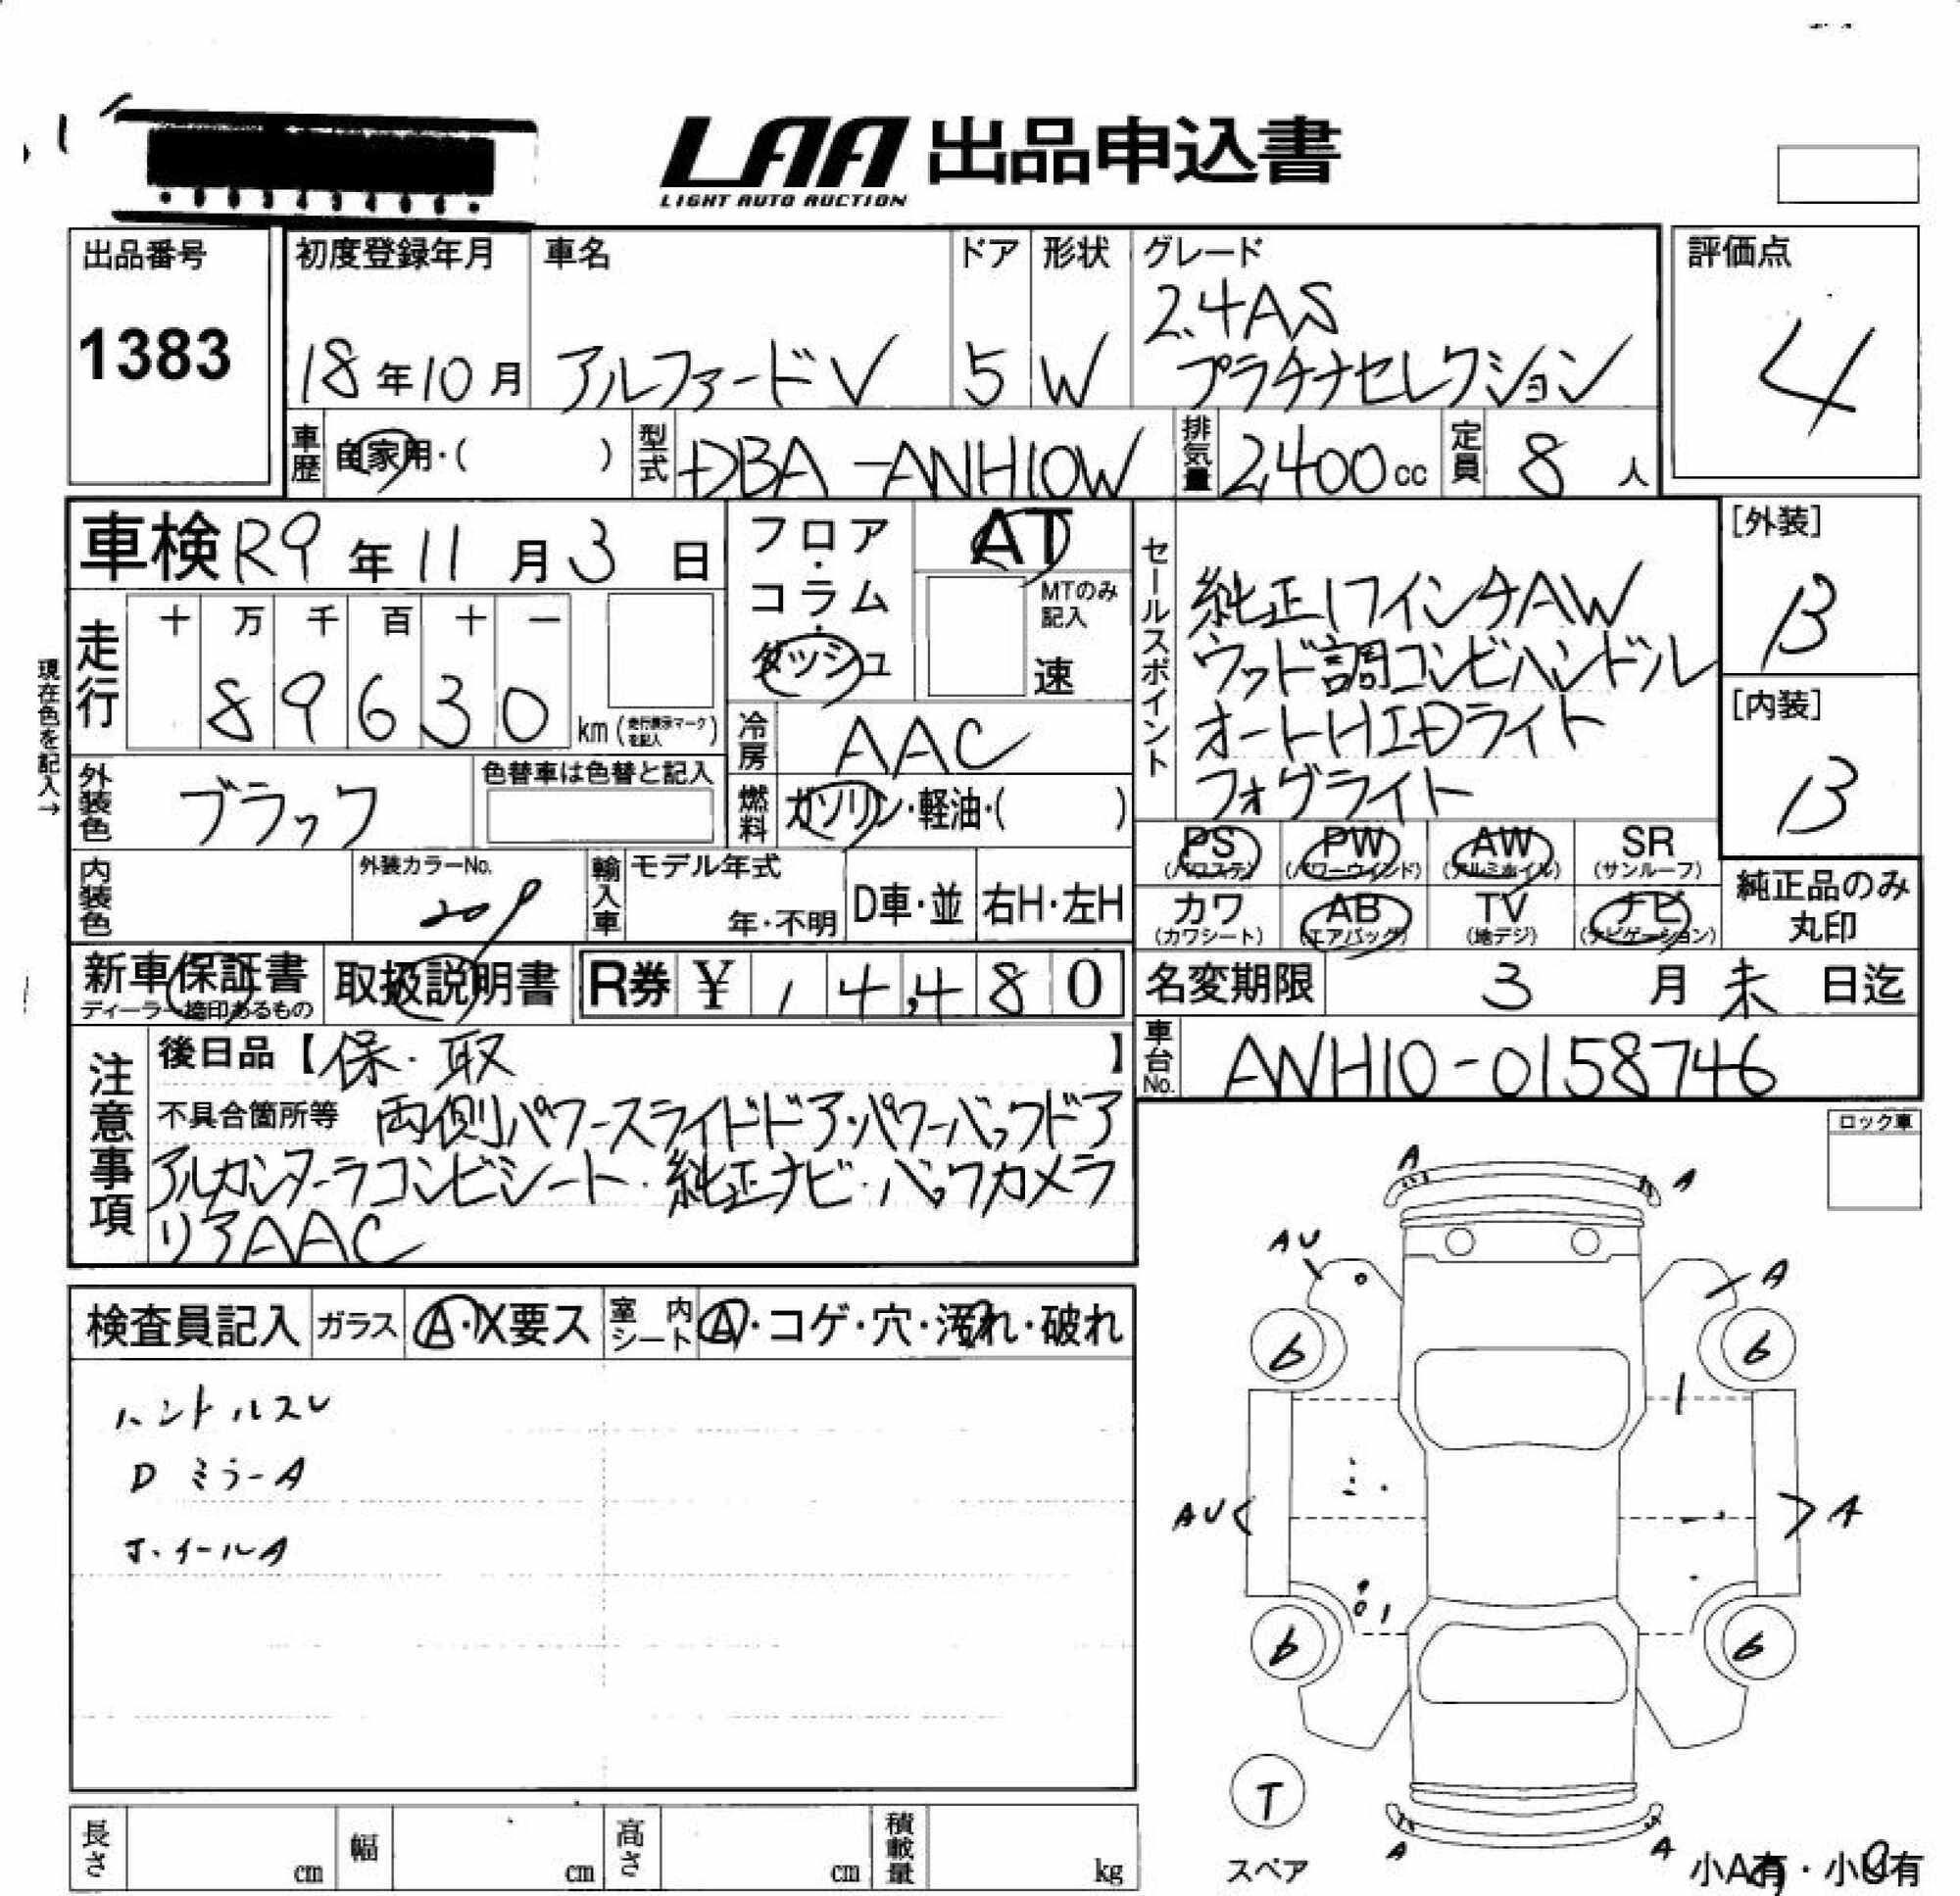 LAA 出品申込書
LIGHT AUTO AUCTION
出品番号
1383
初度登録年月
18年10月
車名
アルファードV
ドア
5
形状
W
グレード
2.4AS
プラチナセレクション
評価点
4
車歴 自家用・( )
型式 DBA-ANH10W
排気量 2,400cc
定員 8人
車検 R9年11月3日
フロア・コラム・ダッシュ
AT
MTのみ記入
速
現在色を記入→
走行
十 万 千 百 十 一
89630 km (走行表示マークを記入)
冷房 AAC
外装色 ブラック
色替車は色替と記入
燃料 ガソリン・軽油・( )
セールスポイント
純正17インチAW
ウッド調コンビハンドル
オートHIDライト
フォグライト
[外装]
B
[内装]
B
PS (パワステ) PW (パワーウインド) AW (アルミホイル) SR (サンルーフ)
カワ (カワシート) AB (エアバッグ) TV (地デジ) ナビ (ナビゲーション)
純正品のみ丸印
内装色
外装カラーNo.
209
輸入車
モデル年式
年・不明
D車・並
右H・左H
新車保証書
ディーラー捺印あるもの
取扱説明書
R券 ¥ 14,480
名変期限 3月末日迄
車台No. ANH10-0158746
注意事項
後日品【保・取】
不具合箇所等 両側パワースライドドア・パワーバックドア
アルカンターラコンビシート・純正ナビ・バックカメラ
リアAAC
ロック車
検査員記入
ガラス A・X要ス
室内シート A・コゲ・穴・汚れ・破れ
ハンドルスレ
DミラーA
ホイールA
A A
AU A
6 6
AU A
6 6
T
スペア
A A
小A有・小U有
長さ cm
幅 cm
高さ cm
積載量 kg